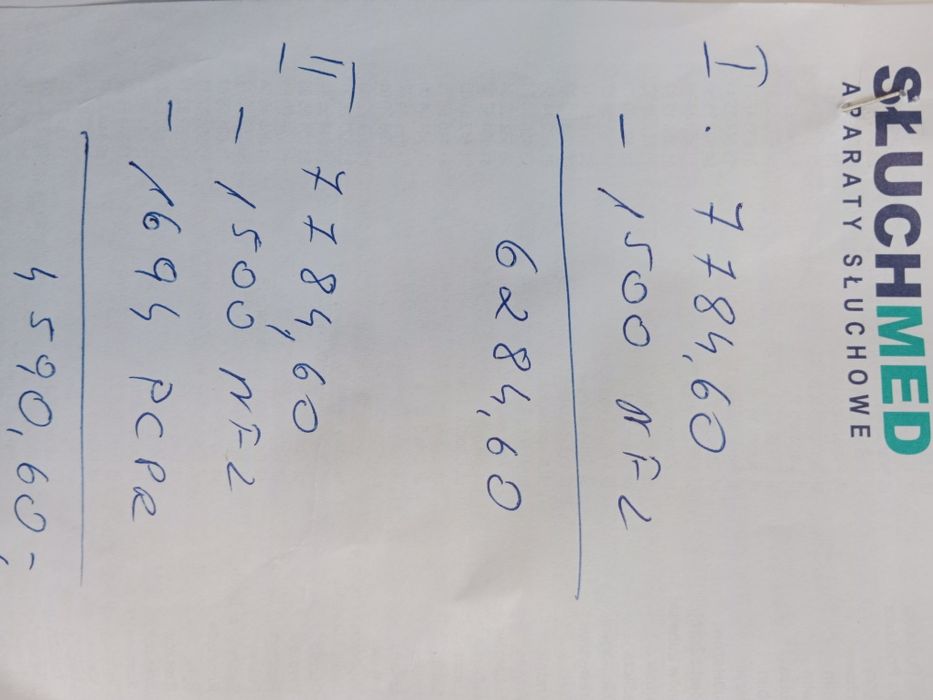 SŁUCHMED
APARATY SŁUCHOWE
I. 7784,60
- 1500 NFZ
6284,60
II 7784,60
- 1500 NFZ
- 1694 PCPR
4590,60,-